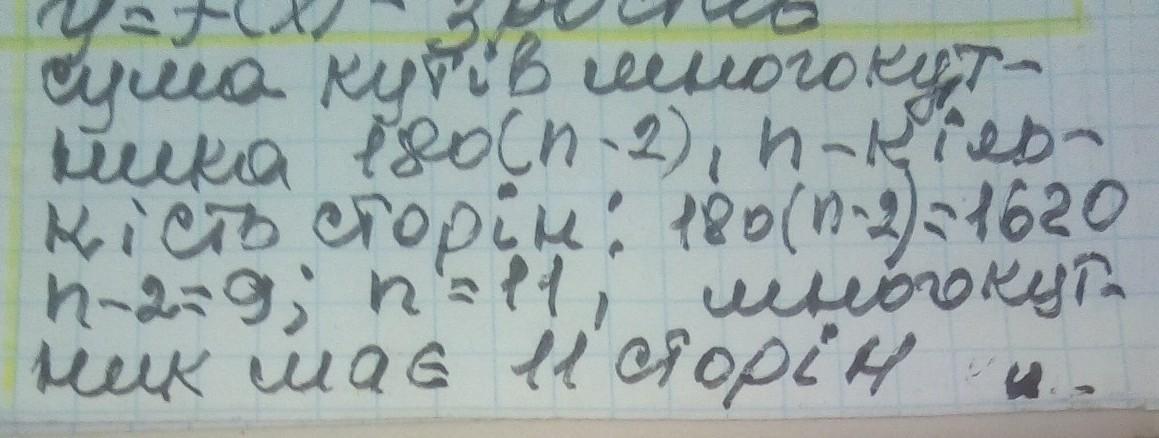 y=f(x) - зрость
сума кутів многокут-
ника 180(n-2), n-кіль-
кість сторін: 180(n-2)=1620
n-2=9; n=11, многокут-
ник має 11 сторін